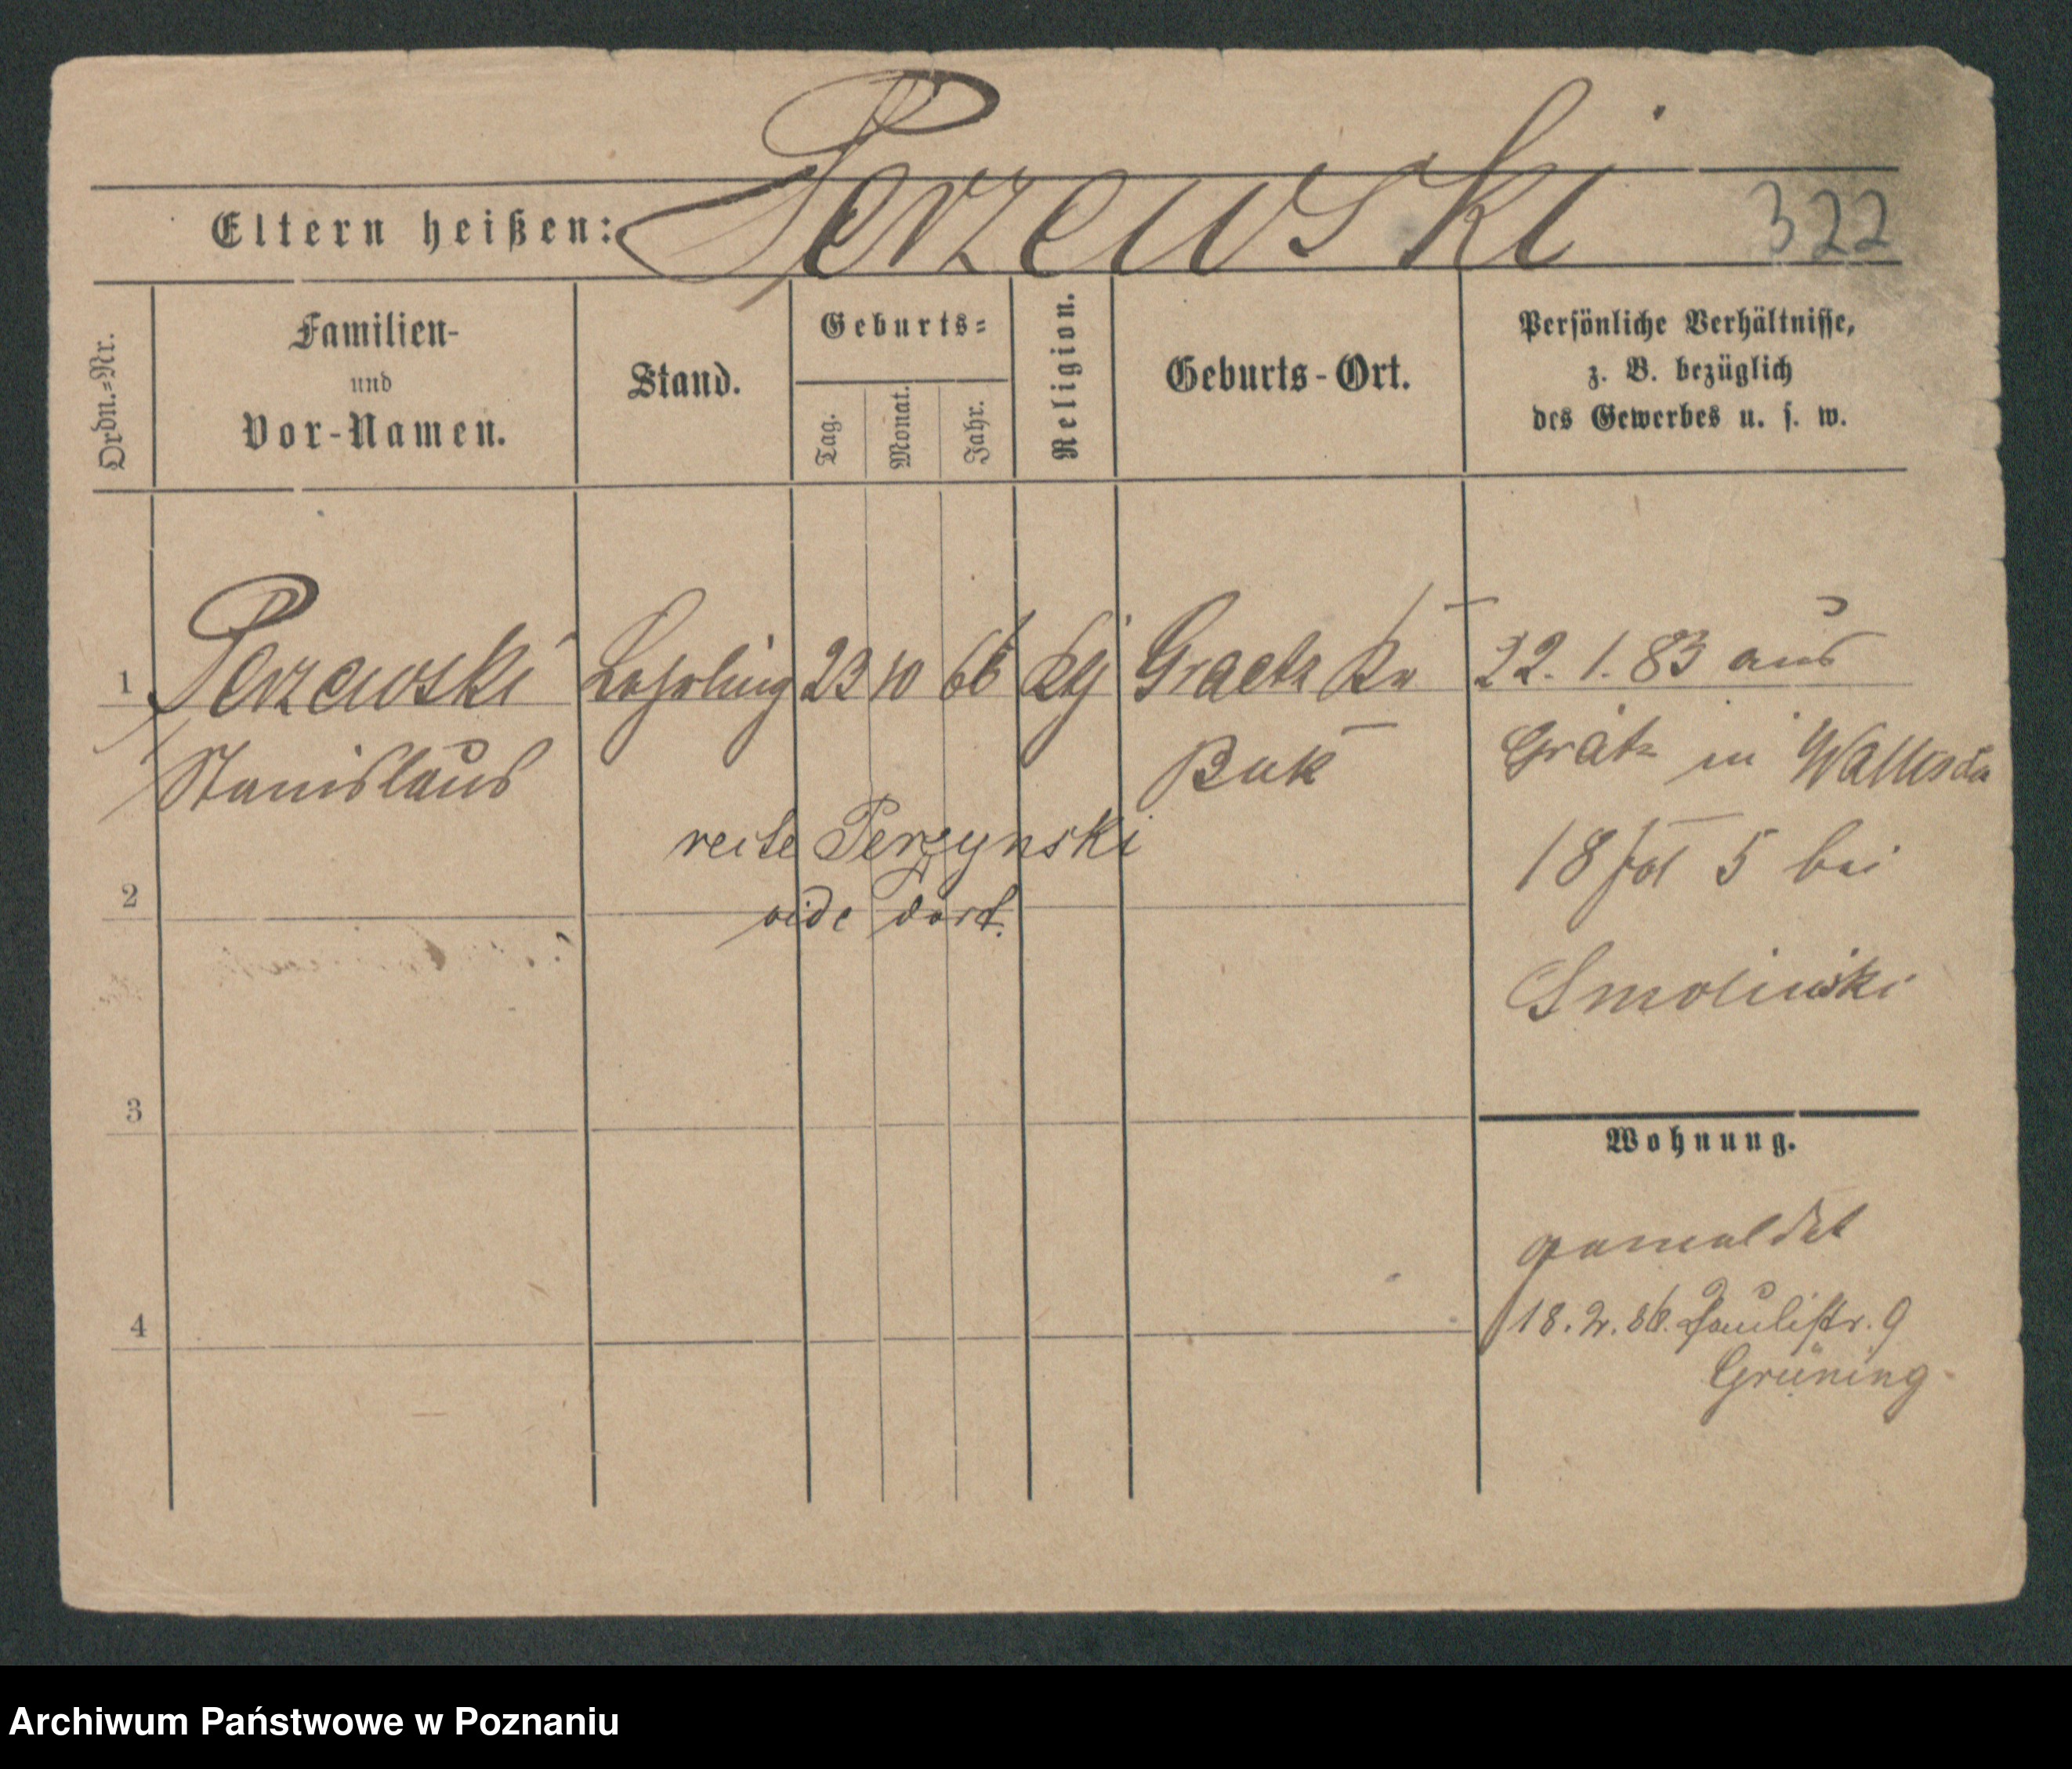 Perzewski
Eltern heißen:
322
Ordn.=Nr.
Familien-
und
Vor-Namen.
Stand.
Geburts=
Tag.
Monat.
Jahr.
Religion.
Geburts-Ort.
Persönliche Verhältnisse,
z. B. bezüglich
des Gewerbes u. s. w.
1 Perzewski Lehrling 23 10 66 Graetz Kr 22. 1. 83 aus
Stanislaus Buk Grätz in
recte Perzynski 18 5 bei
2 vide dort.
Smolinski
3
Wohnung.
gemeldet
4 18. 2. 86. Paulistr. 9
Grüning
Archiwum Państwowe w Poznaniu